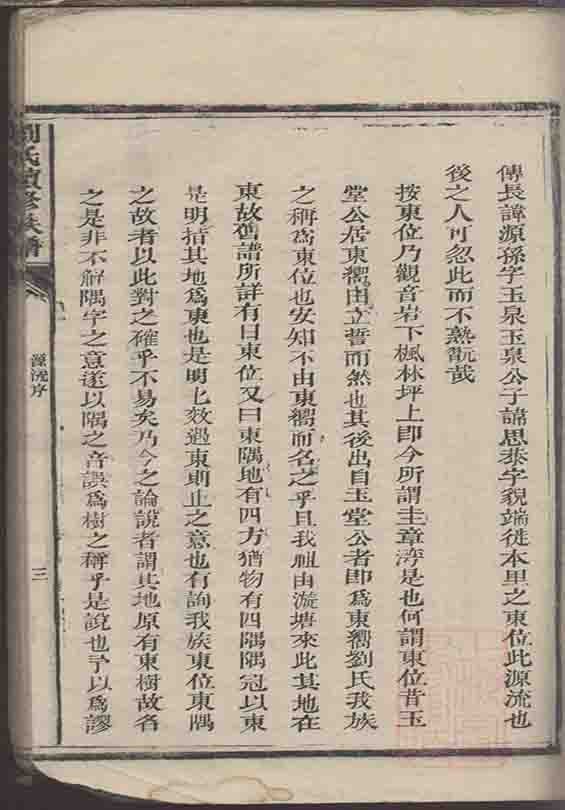 傳長諱源孫字玉泉玉泉公子諱思恭字貌端徙本里之東位此源流也
後之人可忽此而不熟翫哉
按東位乃觀音岩下楓林坪上即今所謂圭章湾是也何謂東位昔玉
堂公居東衢由立誓而然也其後出自玉堂公者即爲東衢劉氏我族
之稱爲東位也安知不由東衢而名之乎且我祖由漩塘來此其地在
東故舊譜所詳有曰東位又曰東隅地有四方猶物有四隅隅冠以東
是明指其地爲東也是明乜效過東則止之意也有詢我族東位東隅
之故者以此對之確乎不易矣乃今之論說者謂其地原有東樹故名
之是非不解隅字之意遂以隅之音誤爲樹之稱乎是說也予以爲謬
劉氏續修族譜
源流序
三